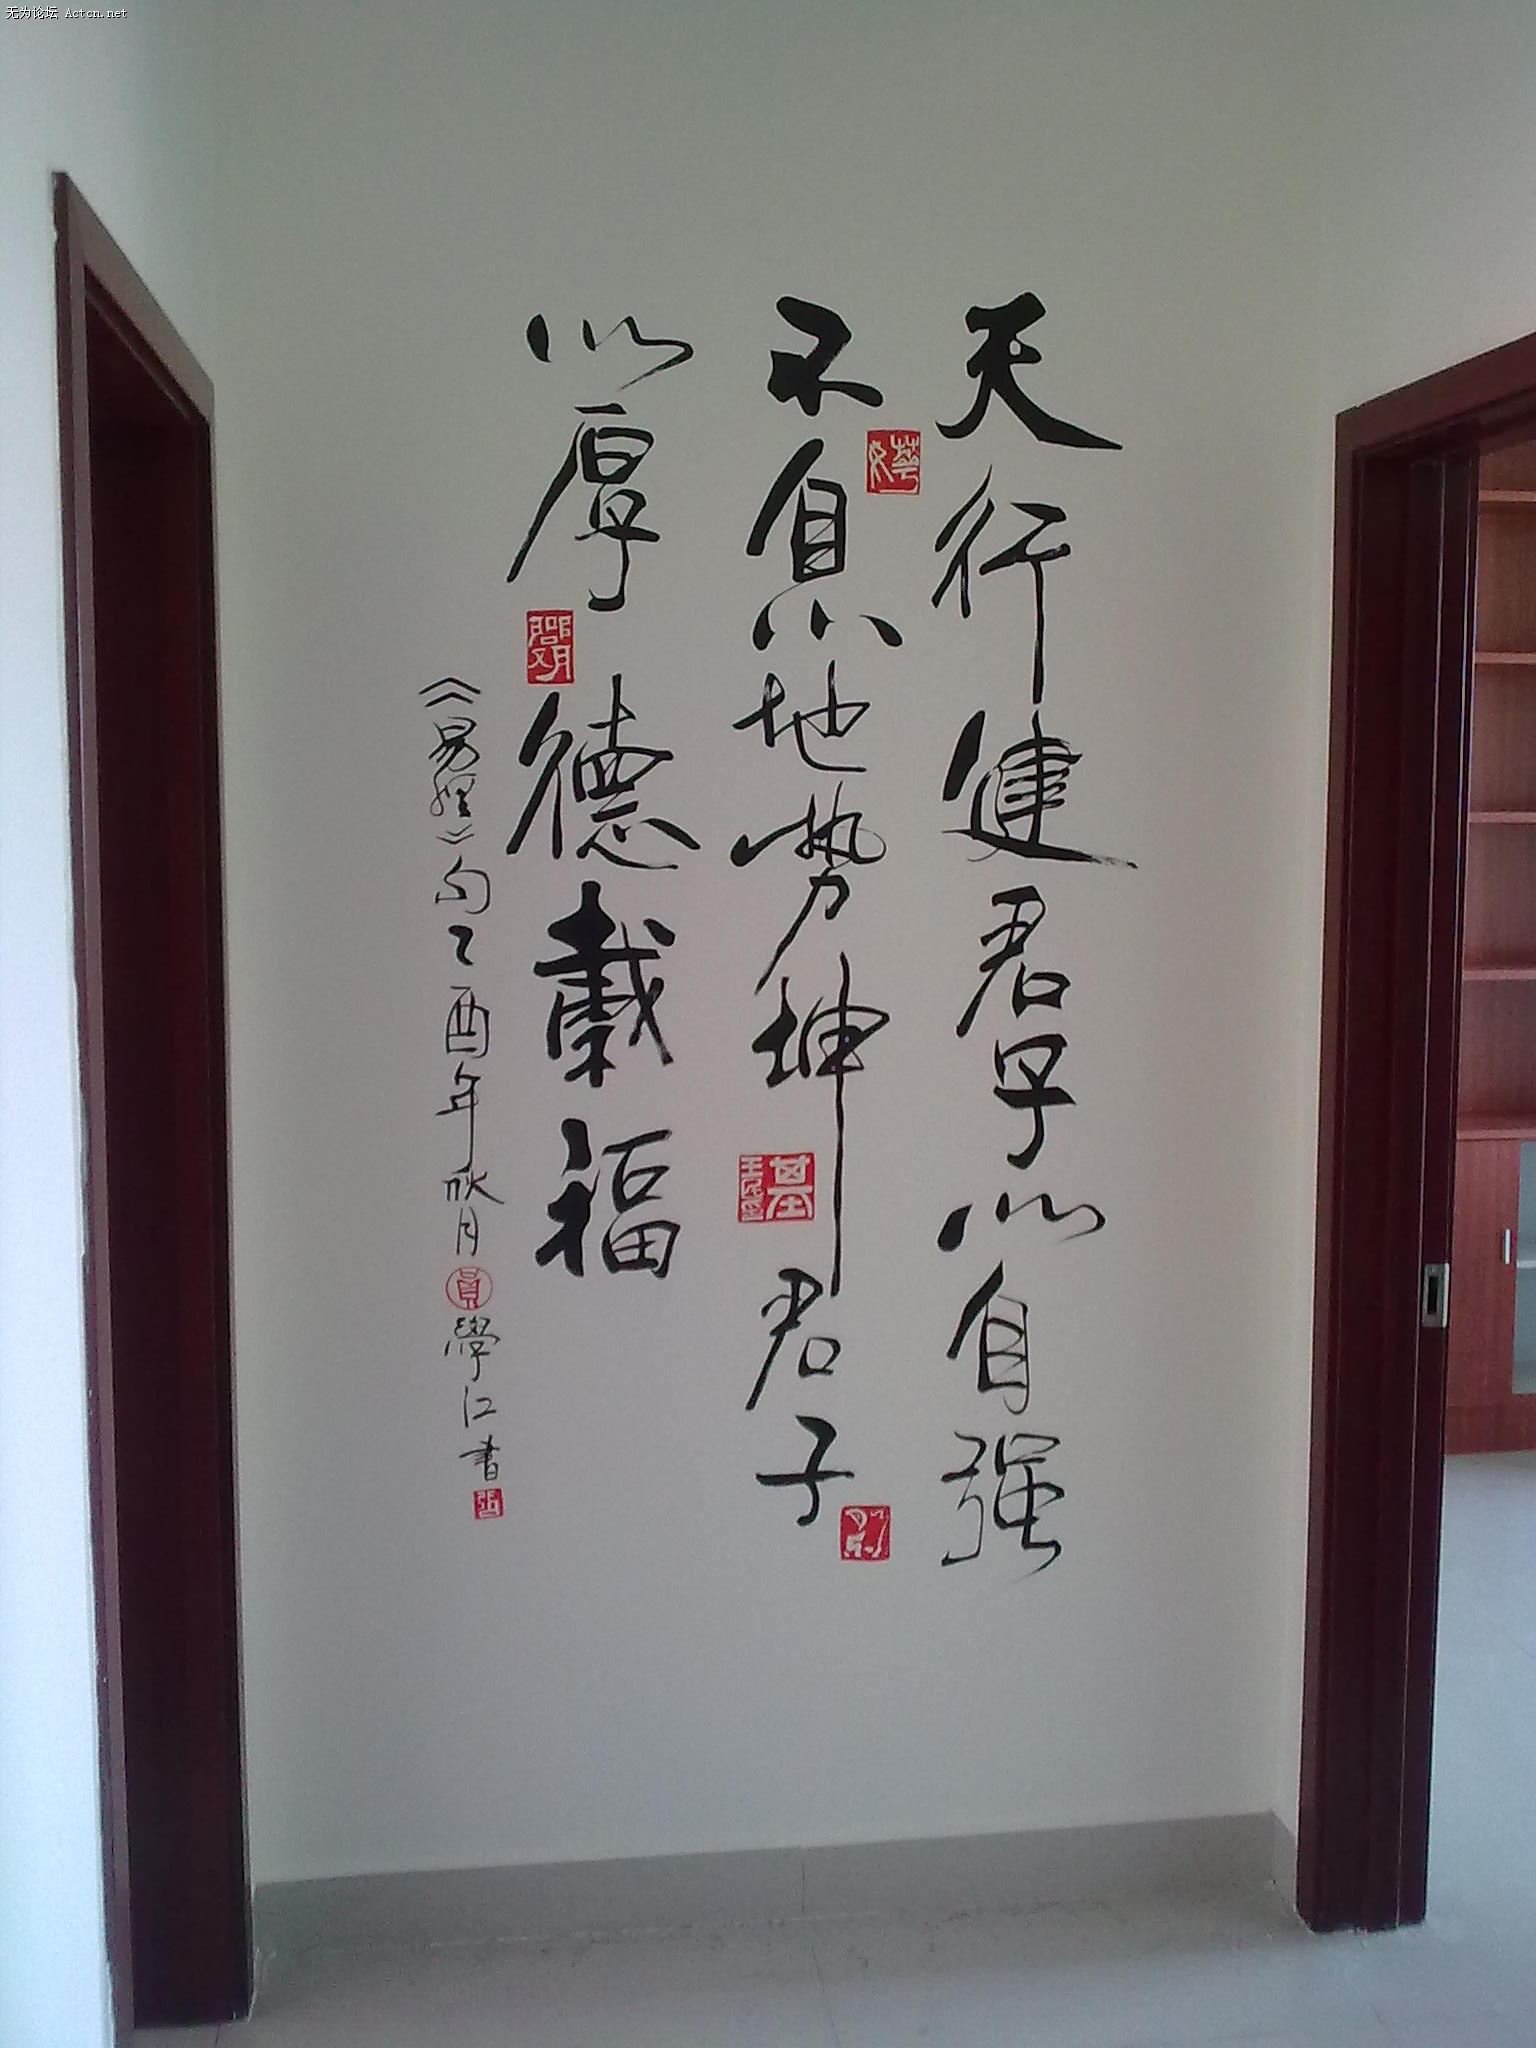 无为论坛 Actcn.net
天行健君子以自强
不息地势坤君子
以厚德載福
《易經》句乙酉年秋月學江書